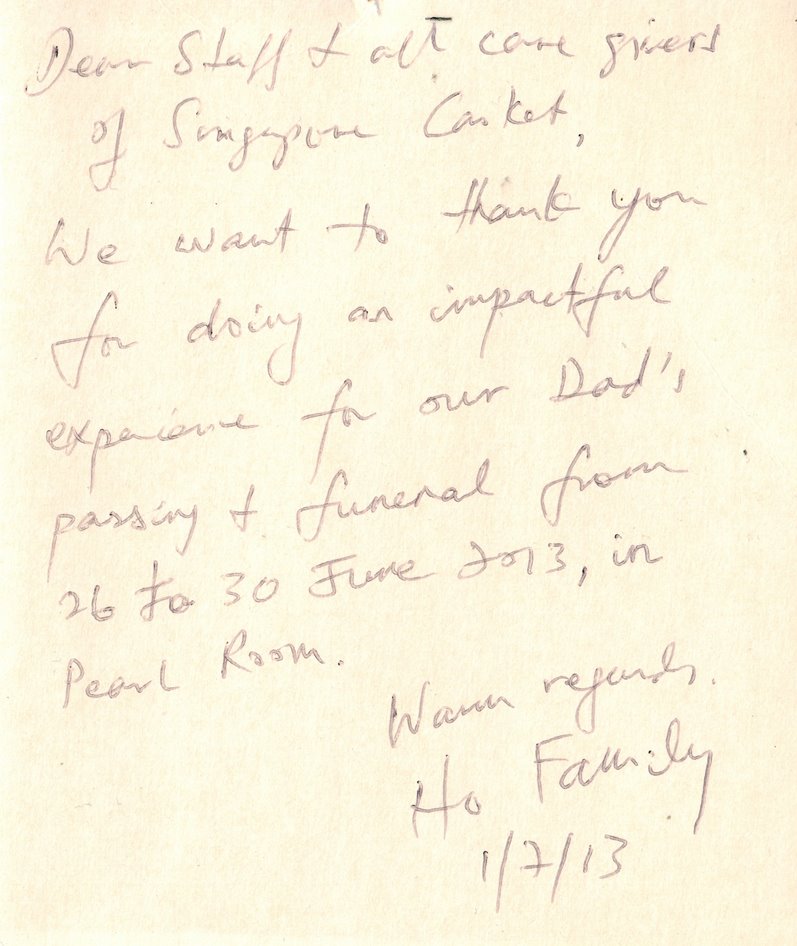 Dear Staff & all care givers
of Singapore Casket,
We want to thank you
for doing an impactful
experience for our Dad's
passing & funeral from
26 to 30 June 2013, in
Pearl Room.
Warm regards.
Ho Family
1/7/13